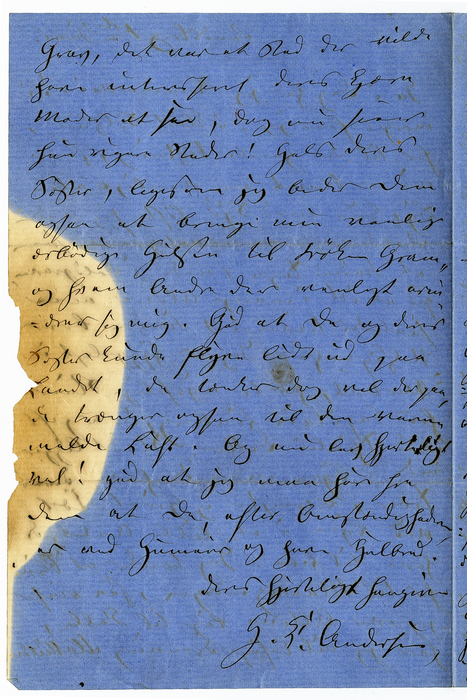 Grav, det var et Sted der vilde
have interesseret deres kjære
Moder at see, dog nu seer
hun Steder! Hils deres
Søster, ligesom jeg beder Dem
ogsaa at bringe min venlig
ærbødige Hilsen til Frøken Gram,
og hvem Andre der venligt erin-
=drer sig mig. Gid at De og deres
Søster kunde flyve lidt ud paa
Landet, De tænker dog vel derpaa,
De trænger ogsaa til den varme
milde Luft. Og nu lev hjerteligt
vel! gid at jeg maa høre fra
dem at De, efter Omstændighederne,
er ved Humeur og have Helbred.
deres hjerteligt hengivne
H. C. Andersen